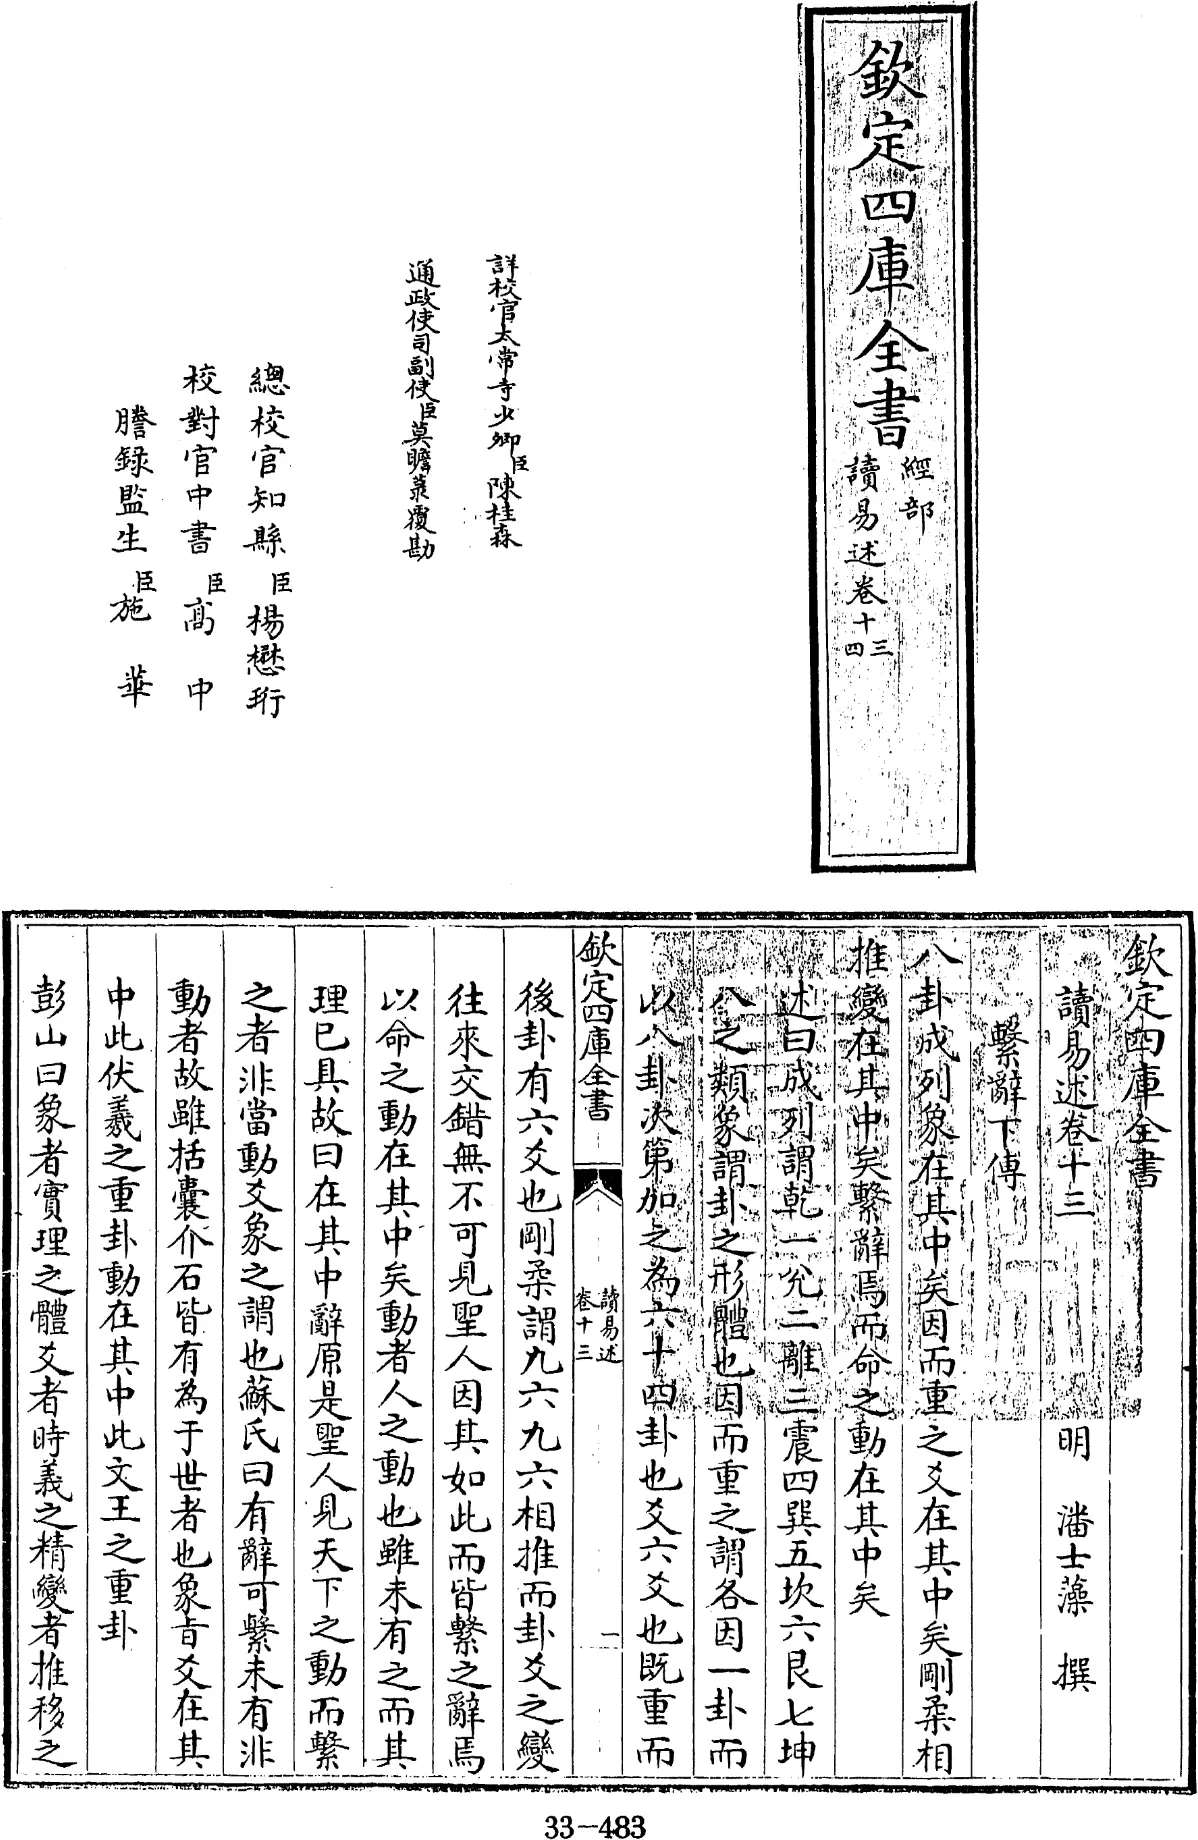 欽定四庫全書
經部
讀易述卷十三
四
詳校官太常寺少卿臣陳桂森
通政使司副使臣莫瞻菉覆勘
總校官知縣臣楊懋珩
校對官中書臣高中
謄錄監生臣施華
欽定四庫全書
讀易述卷十三
明 潘士藻 撰
繫辭下傳
八卦成列象在其中矣因而重之爻在其中矣剛柔相
推變在其中矣繫辭焉而命之動在其中矣
述曰成列謂乾一兌二離三震四巽五坎六艮七坤
八之類象謂卦之形體也因而重之謂各因一卦而
以八卦次第加之為六十四卦也爻六爻也既重而
欽定四庫全書
讀易述
卷十三
一
後卦有六爻也剛柔謂九六九六相推而卦爻之變
往來交錯無不可見聖人因其如此而皆繫之辭焉
以命之動在其中矣動者人之動也雖未有之而其
理已具故曰在其中辭原是聖人見天下之動而繫
之者非當動爻象之謂也蘇氏曰有辭可繫未有非
動者故雖括囊介石皆有為于世者也象言爻在其
中此伏羲之重卦動在其中此文王之重卦
彭山曰象者實理之體爻者時義之精變者推移之
33-483